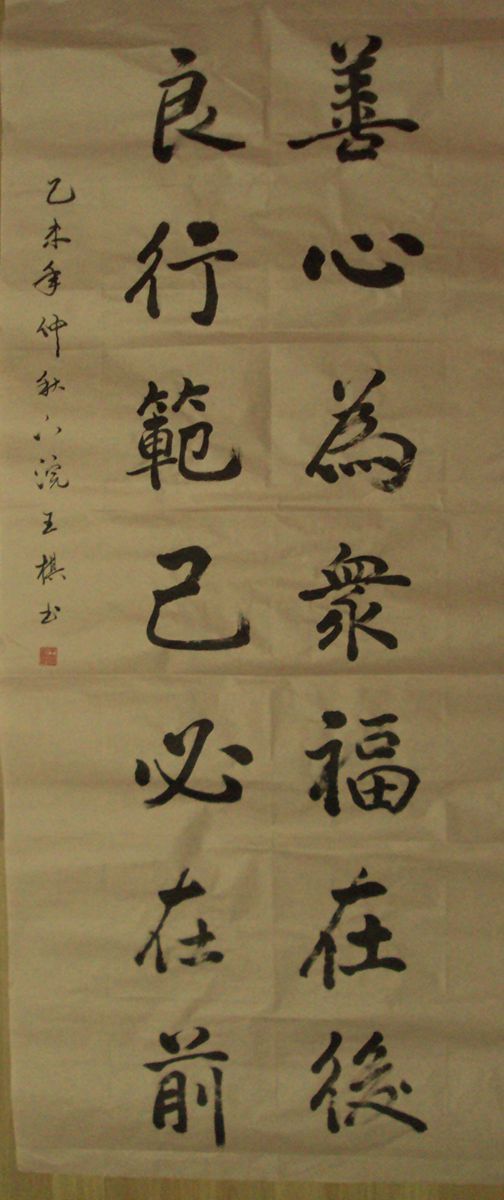 善心為衆福在後
良行範己必在前
乙未年仲秋六浣王棋书